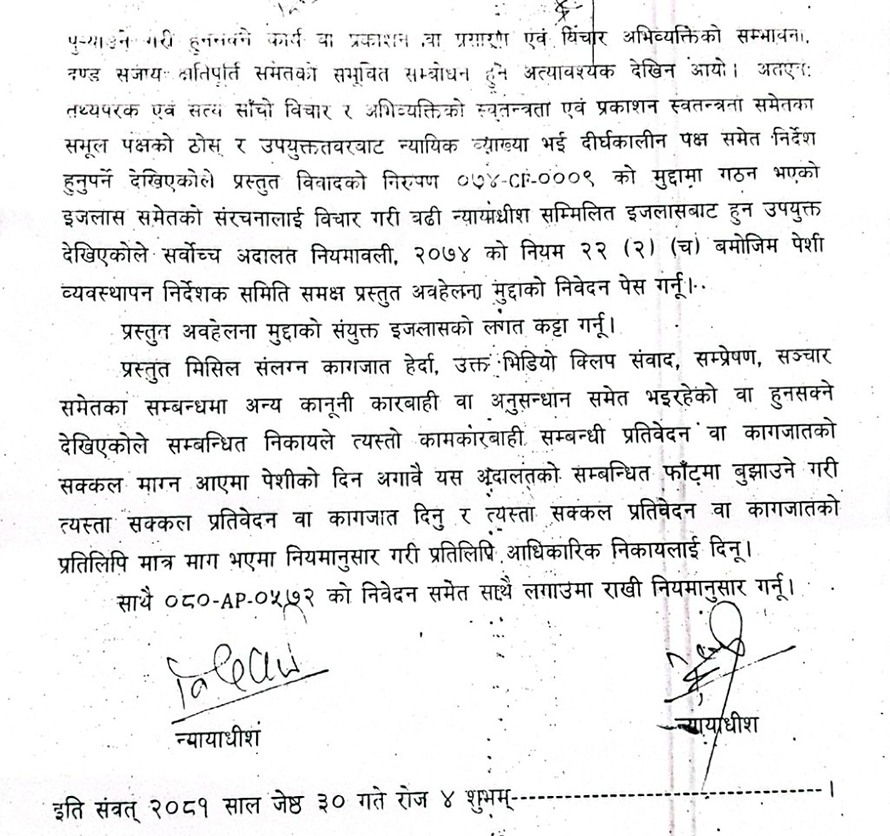 पुऱ्याउने गरी हुनसक्ने कार्य वा प्रकाशन वा प्रसारण एवं विचार अभिव्यक्तिको सम्भावना,
दण्ड सजाय क्षतिपूर्ति समेतको समुचित सम्बोधन हुने अत्यावश्यक देखिन आयो। अतएव:
तथ्यपरक एवं सत्य साँचो विचार र अभिव्यक्तिको स्वतन्त्रता एवं प्रकाशन स्वतन्त्रता समेतका
समूल पक्षको ठोस् र उपयुक्ततवरबाट न्यायिक व्याख्या भई दीर्घकालीन पक्ष समेत निर्देश
हुनुपर्ने देखिएकोले प्रस्तुत विवादको निरुपण ०७४-CF-०००९ को मुद्दामा गठन भएको
इजलास समेतको संरचनालाई विचार गरी बढी न्यायाधीश सम्मिलित इजलासबाट हुन उपयुक्त
देखिएकोले सर्वोच्च अदालत नियमावली, २०७४ को नियम २२ (२) (च) बमोजिम पेशी
व्यवस्थापन निर्देशक समिति समक्ष प्रस्तुत अवहेलना मुद्दाको निवेदन पेस गर्नू।
प्रस्तुत अवहेलना मुद्दाको संयुक्त इजलासको लगत कट्टा गर्नू।
प्रस्तुत मिसिल संलग्न कागजात हेर्दा, उक्त भिडियो क्लिप संवाद, सम्प्रेषण, सञ्चार
समेतका सम्बन्धमा अन्य कानूनी कारबाही वा अनुसन्धान समेत भइरहेको वा हुनसक्ने
देखिएकोले सम्बन्धित निकायले त्यस्तो कामकारबाही सम्बन्धी प्रतिवेदन वा कागजातको
सक्कल माग्न आएमा पेशीको दिन अगावै यस अदालतको सम्बन्धित फाँटमा बुझाउने गरी
त्यस्ता सक्कल प्रतिवेदन वा कागजात दिनु र त्यस्ता सक्कल प्रतिवेदन वा कागजातको
प्रतिलिपि मात्र माग भएमा नियमानुसार गरी प्रतिलिपि आधिकारिक निकायलाई दिनू।
साथै ०८०-AP-०५७२ को निवेदन समेत साथै लगाउमा राखी नियमानुसार गर्नू।
न्यायाधीश न्यायाधीश
इति संवत् २०८१ साल जेष्ठ ३० गते रोज ४ शुभम्------------------------------।